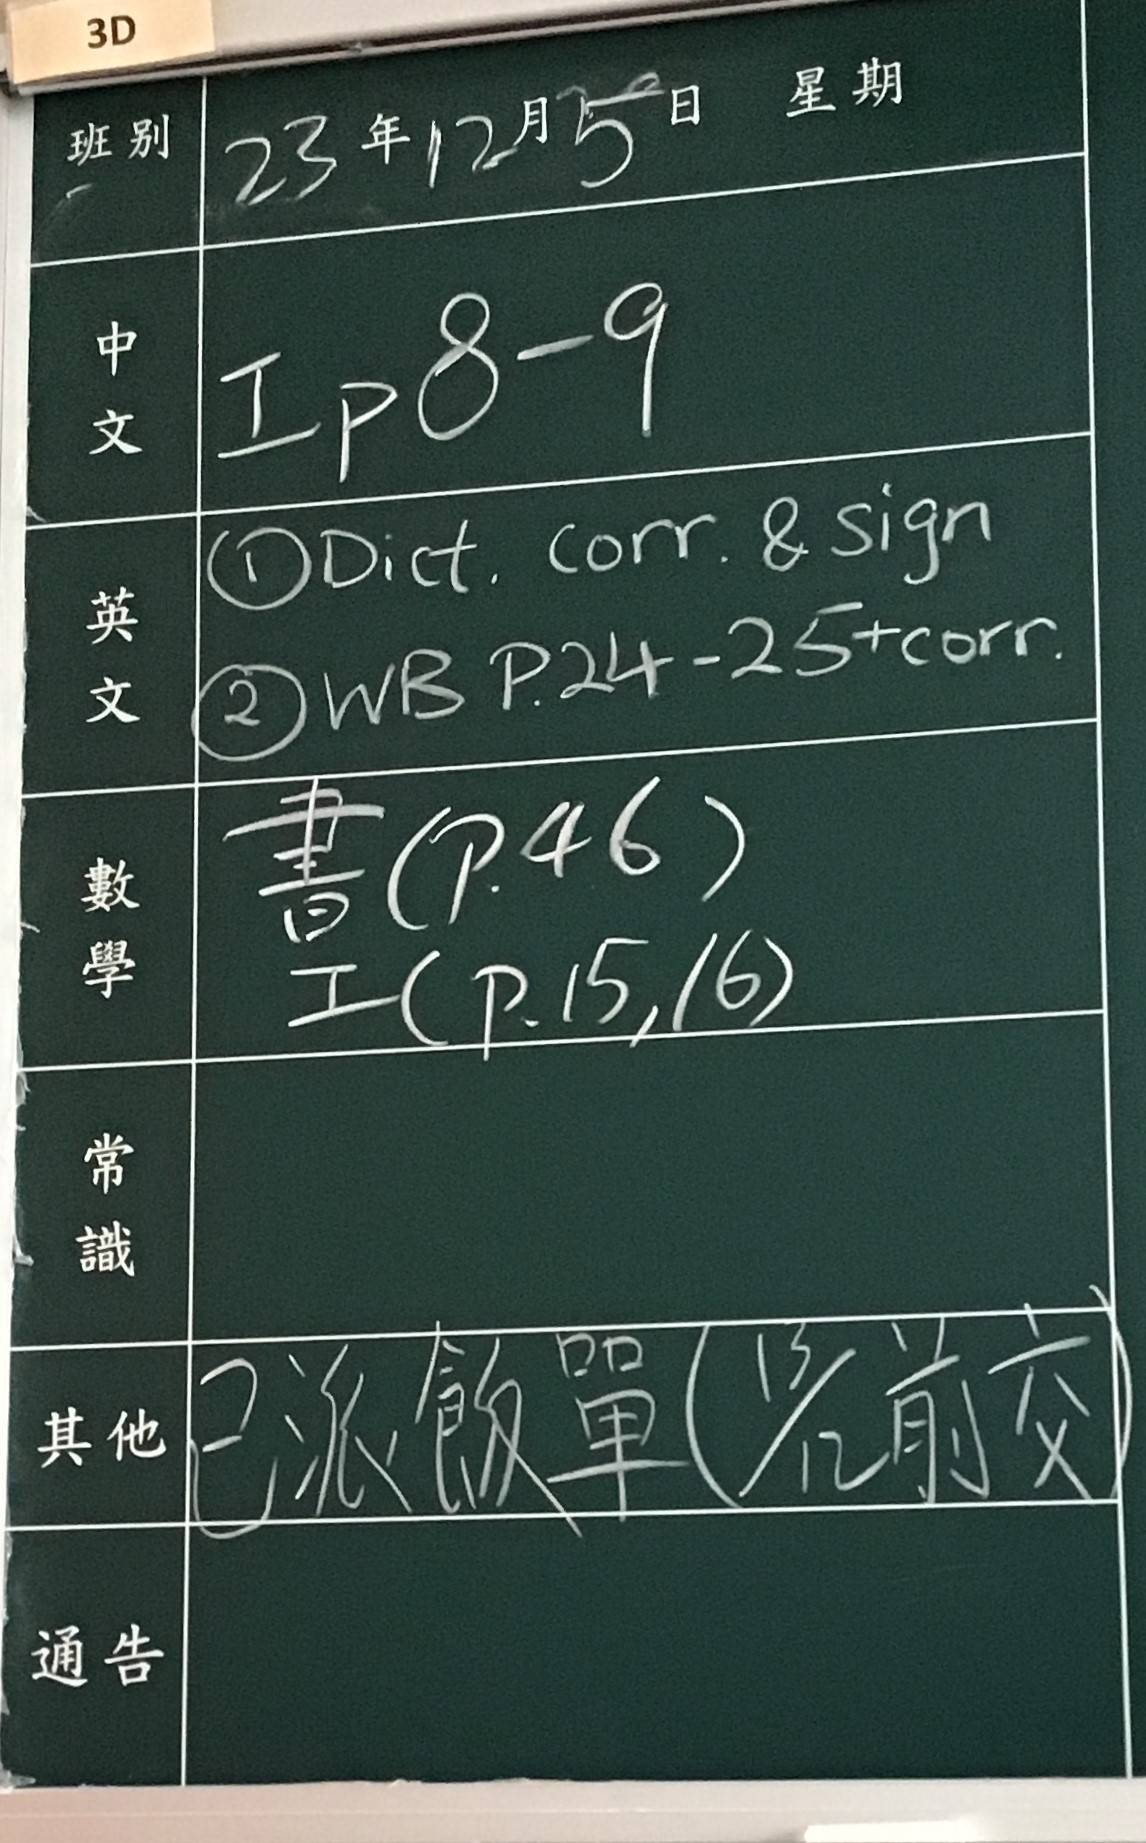 3D
班別 23年12月5日 星期
中文 工p8-9
英文 ①Dict. corr. & sign
②WB P.24-25+corr.
數學 書(p.46)
工(p.15,16)
常識
其他 已派飯單(13/12前交)
通告